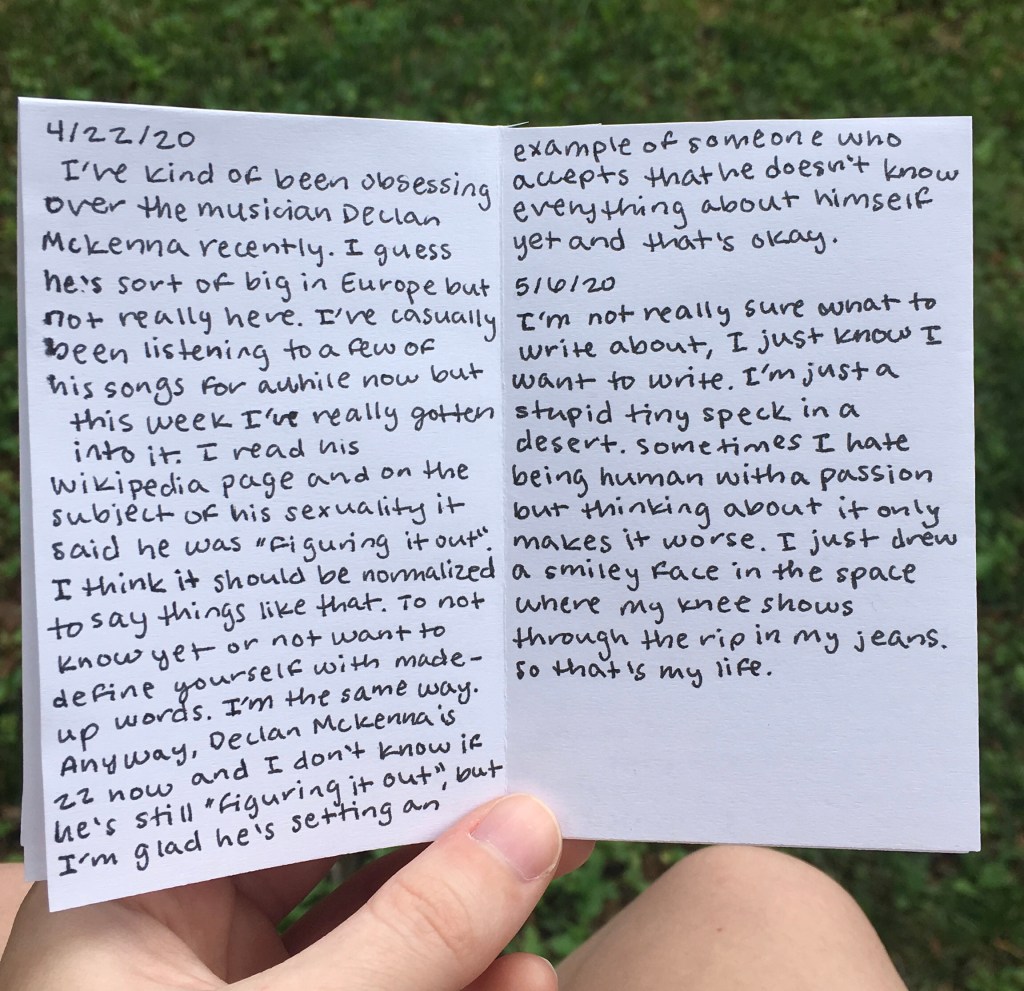 4/22/20
I've kind of been obsessing
over the musician Declan
McKenna recently. I guess
he's sort of big in Europe but
not really here. I've casually
been listening to a few of
his songs for awhile now but
this week I've really gotten
into it. I read his
Wikipedia page and on the
subject of his sexuality it
said he was "figuring it out".
I think it should be normalized
to say things like that. To not
know yet or not want to
define yourself with made-
up words. I'm the same way.
Anyway, Declan McKenna is
22 now and I don't know if
he's still "figuring it out", but
I'm glad he's setting an
example of someone who
accepts that he doesn't know
everything about himself
yet and that's okay.
5/6/20
I'm not really sure what to
write about, I just know I
want to write. I'm just a
stupid tiny speck in a
desert. Sometimes I hate
being human with a passion
but thinking about it only
makes it worse. I just drew
a smiley face in the space
where my knee shows
through the rip in my jeans.
So that's my life.